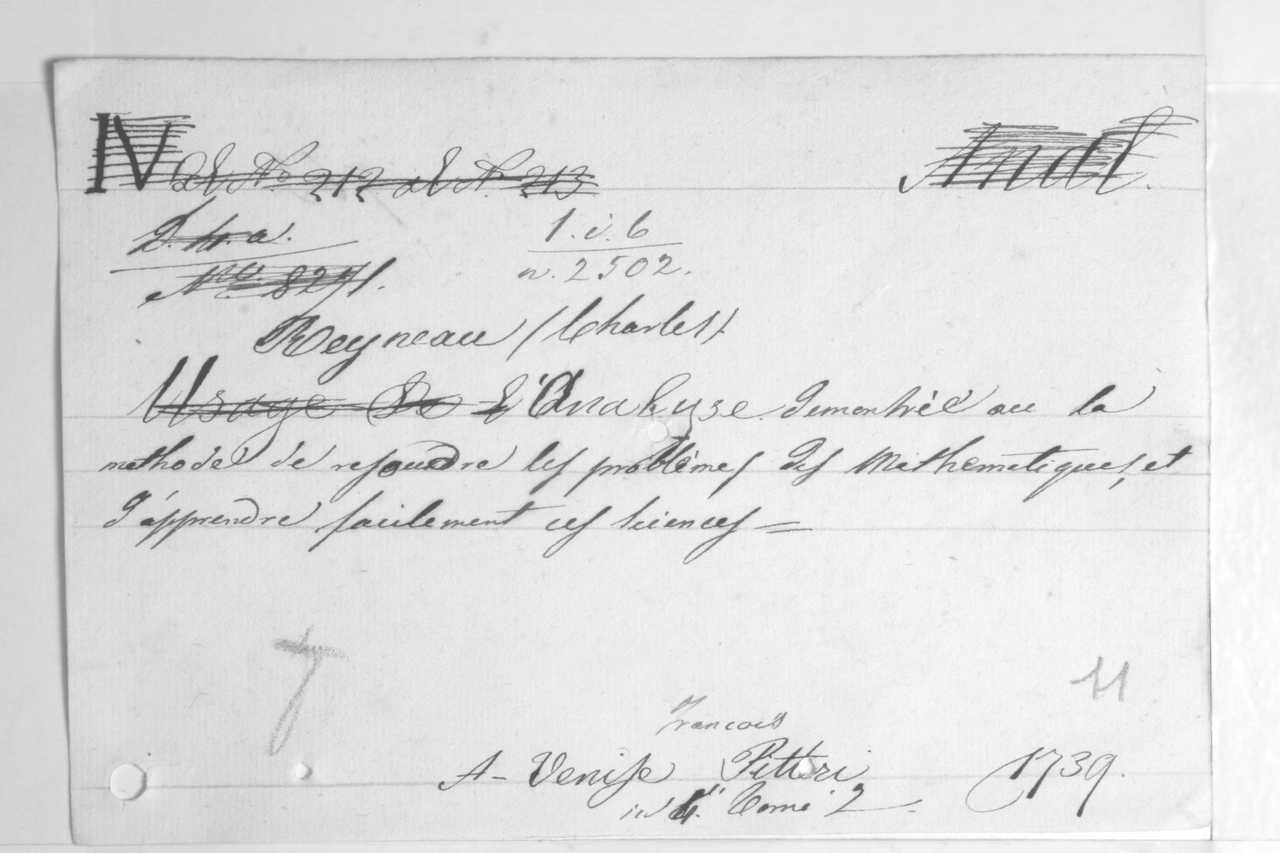 IV al No 212 al N. 213
1.i.6
No. 8271.
n. 2502.
Reyneau (Charles)
Usage De L'Analyse demontrèe ou la
methode de resoudre les problêmes des Mathematiques, et
d'apprendre facilement ces sciences =
11
Francois
A- Venise Pitteri 1739.
in 4.° Tome 2.